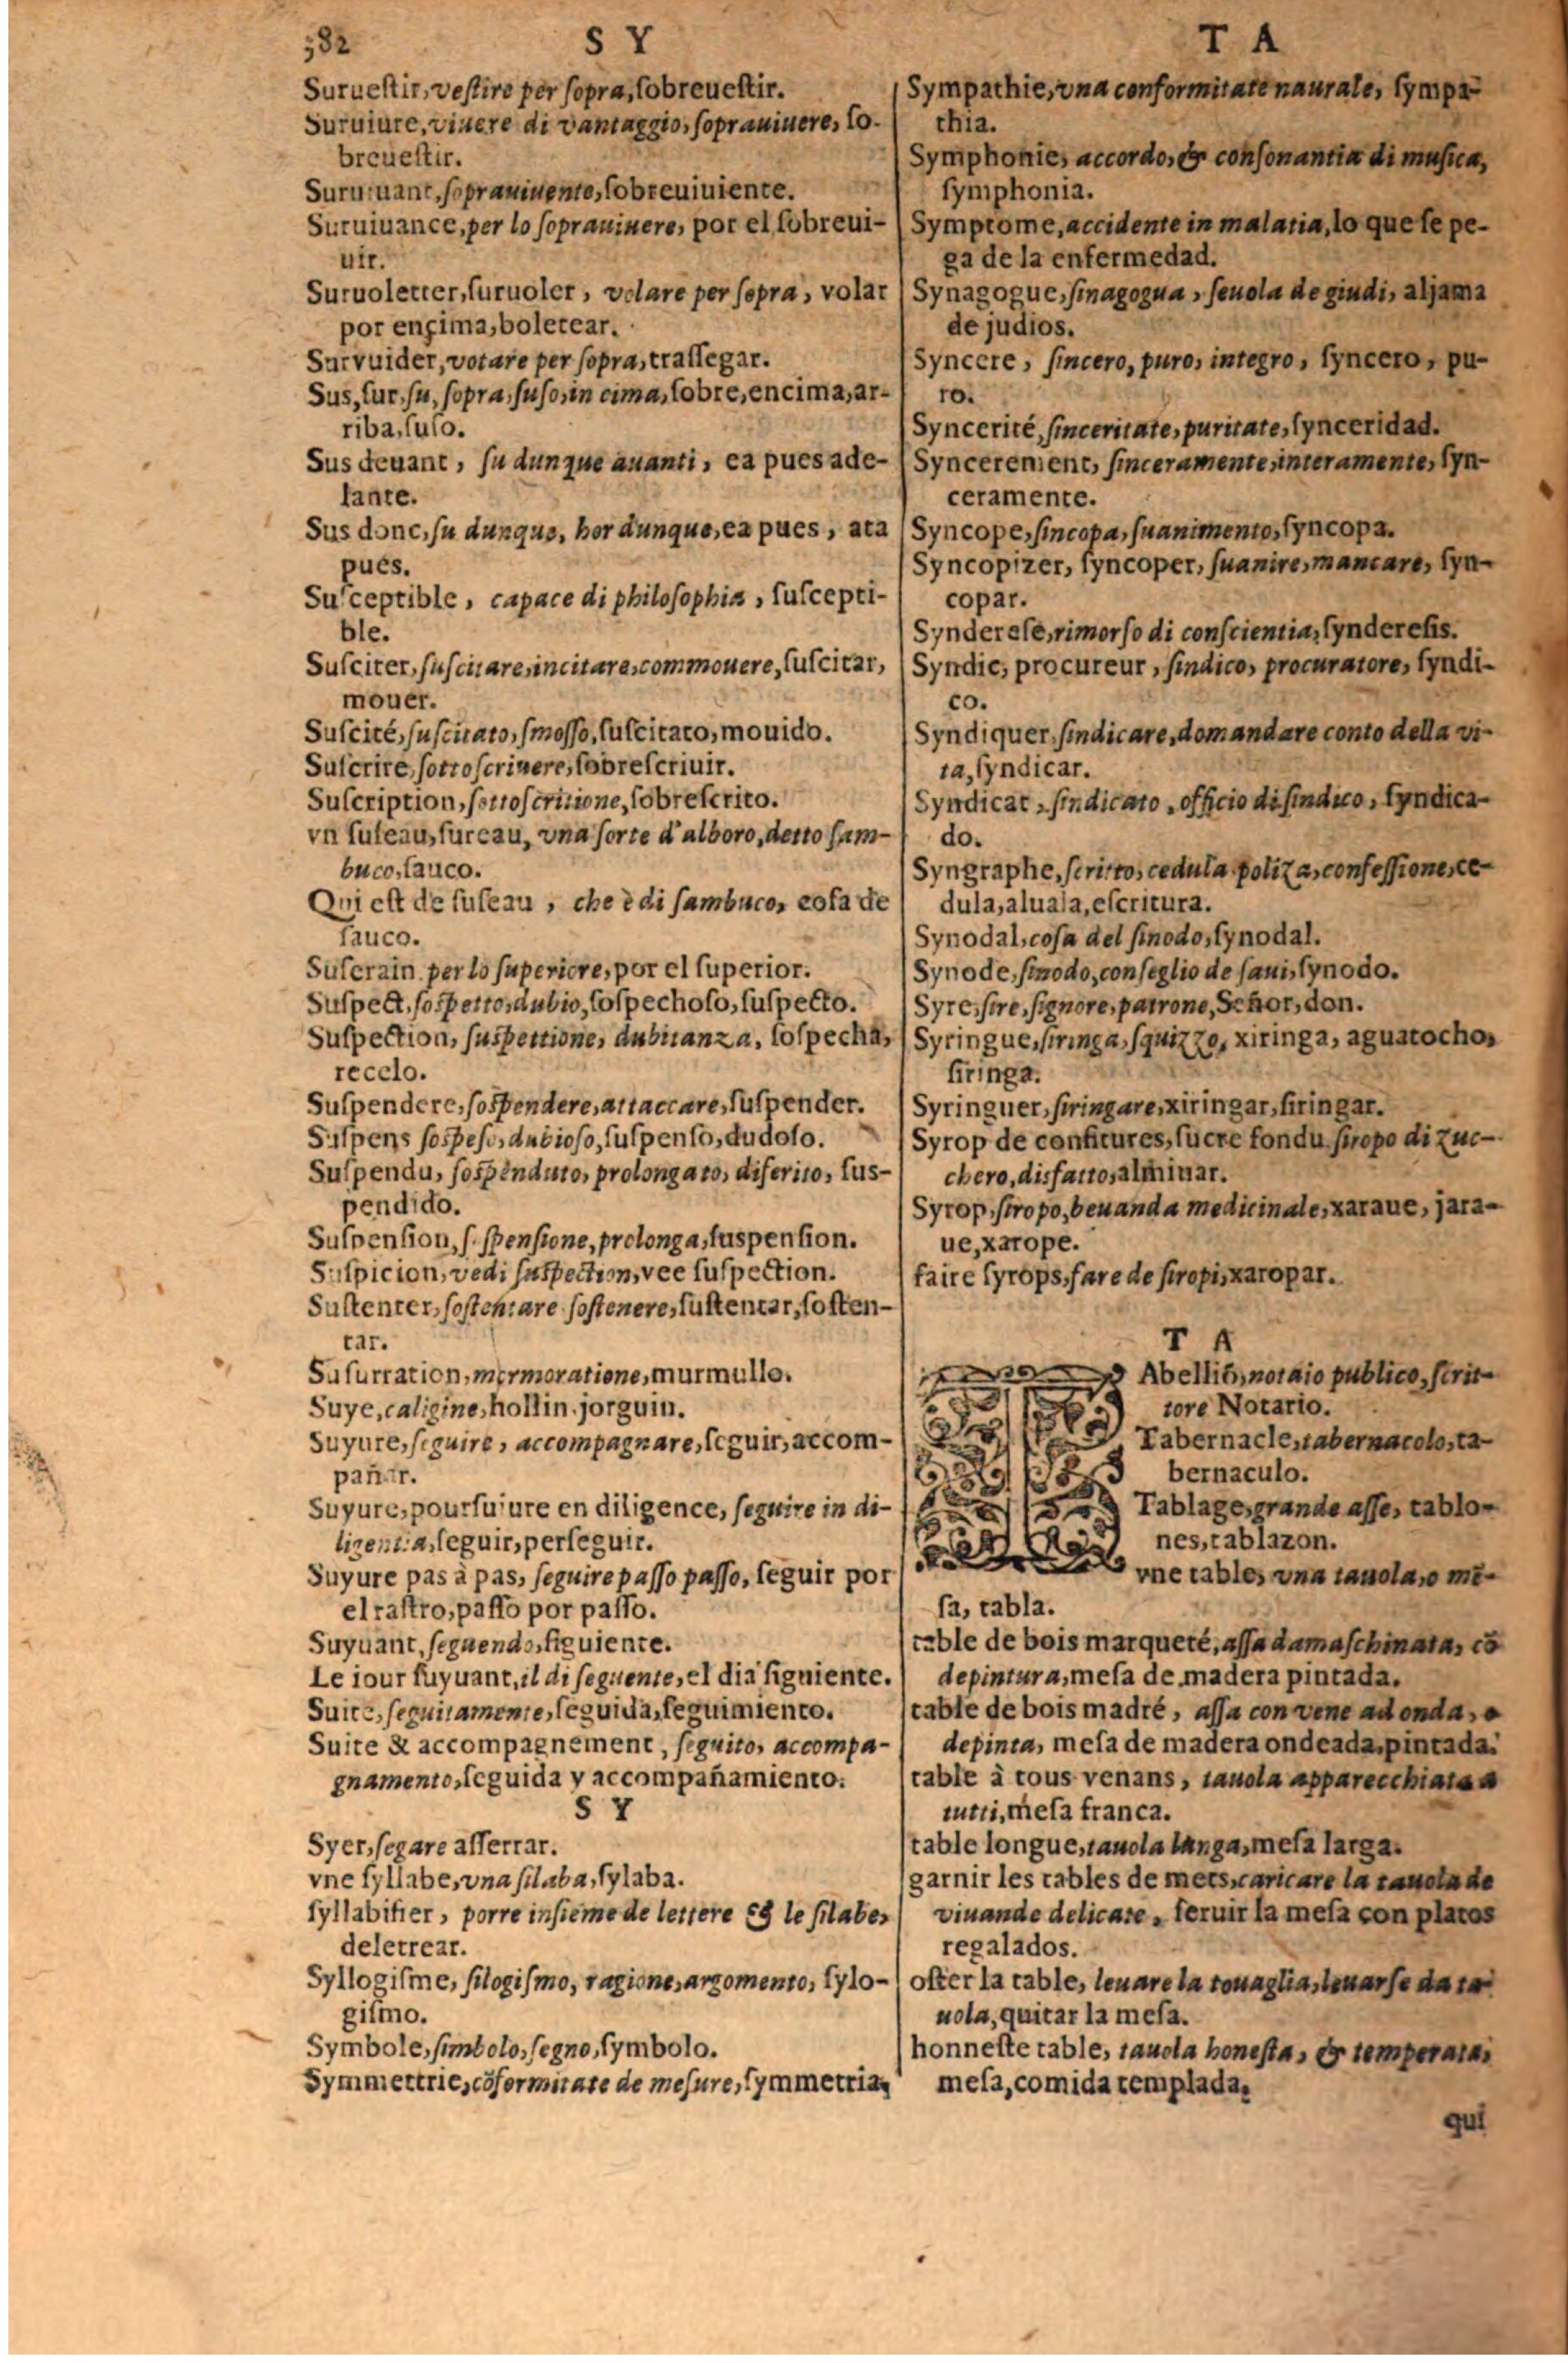 382
S Y
T A
Suruestir, vestire per sopra, sobreuestir.
Suruiure, viuere di vantaggio, soprauiuere, so-
breuestir.
Suruiuant, soprauiuente, sobreuiuiente.
Suruiuance, per lo soprauiuere, por el sobreui-
uir.
Suruoletter, suruoler, volare per sopra, volar
por ençima, boletear.
Survuider, votare per sopra, trassegar.
Sus, sur, su, sopra, suso, in cima, sobre, encima, ar-
riba, suso.
Sus deuant, su dunque auanti, ea pues ade-
lante.
Sus donc, su dunque, hor dunque, ea pues, ata
pues.
Susceptible, capace di philosophia, suscepti-
ble.
Susciter, suscitare, incitare, commouere, suscitar,
mouer.
Suscité, suscitato, smosso, suscitato, mouido.
Suscrire, sottoscriuere, sobrescriuir.
Suscription, sottoscritione, sobrescrito.
vn suseau, sureau, vna sorte d'alboro, detto sam-
buco, sauco.
Qui est de suseau, che è di sambuco, cosa de
sauco.
Suserain per lo superiore, por el superior.
Suspect, sospetto, dubio, sospechoso, suspecto.
Suspection, suspettione, dubitanza, sospecha,
recelo.
Suspendere, sospendere, attaccare, suspender.
Suspens sospeso, dubioso, suspenso, dudoso.
Suspendu, sospenduto, prolongato, diferito, sus-
pendido.
Suspension, suspensione, prolonga, suspension.
Suspicion, vedi suspection, vee suspection.
Sustenter, sostentare sostenere, sustentar, sosten-
tar.
Susurration, mormoratione, murmullo.
Suye, caligine, hollin jorguin.
Suyure, seguire, accompagnare, seguir, accom-
pañar.
Suyure, poursuiure en diligence, seguire in di-
ligentia, seguir, perseguir.
Suyure pas à pas, seguire passo passo, seguir por
el rastro, passo por passo.
Suyuant, seguendo, siguiente.
Le iour suyuant, il di seguente, el dia siguiente.
Suite, seguitamente, seguida, seguimiento.
Suite & accompagnement, seguito, accompa-
gnamento, seguida y accompañamiento.
S Y
Syer, segare asserrar.
vne syllabe, vna silaba, sylaba.
syllabifier, porre insieme de lettere & le silabe,
deletrear.
Syllogisme, silogismo, ragione, argomento, sylo-
gismo.
Symbole, simbolo, segno, symbolo.
Symmettrie, cõformitate de mesure, symmetria,
Sympathie, vna conformitate naurale, sympa-
thia.
Symphonie, accordo, & consonantia di musica,
symphonia.
Symptome, accidente in malatia, lo que se pe-
ga de la enfermedad.
Synagogue, sinagogua, seuola de giudi, aljama
de judios.
Syncere, sincero, puro, integro, syncero, pu-
ro.
Syncerité, sinceritate, puritate, synceridad.
Syncerement, sinceramente, interamente, syn-
ceramente.
Syncope, sincopa, suanimento, syncopa.
Syncopizer, syncoper, suanire, mancare, syn-
copar.
Synderese, rimorso di conscientia, synderesis.
Syndic, procureur, sindico, procuratore, syndi-
co.
Syndiquer, sindicare, domandare conto della vi-
ta, syndicar.
Syndicat, sindicato, officio di sindico, syndica-
do.
Syngraphe, scritto, cedula poliza, confessione, ce-
dula, aluala, escritura.
Synodal, cosa del sinodo, synodal.
Synode, sinodo, conseglio de saui, synodo.
Syre, sire, signore, patrone, Señor, don.
Syringue, siringa, squizzo, xiringa, aguatocho,
siringa.
Syringuer, siringare, xiringar, siringar.
Syrop de confitures, sucre fondu siropo di zuc-
chero, disfatto, alminar.
Syrop, siropo, beuanda medicinale, xaraue, jara-
ue, xarope.
faire syrops, fare de siropi, xaropar.
T A
TAbelliõ, notaio publico, scrit-
tore Notario.
Tabernacle, tabernacolo, ta-
bernaculo.
Tablage, grande asse, tablo-
nes, tablazon.
vne table, vna tauola, o mẽ-
sa, tabla.
table de bois marqueté, assa damaschinata, cõ
depintura, mesa de madera pintada.
table de bois madré, assa con vene ad onda, o
depinta, mesa de madera ondeada, pintada.
table à tous venans, tauola apparecchiata a
tutti, mesa franca.
table longue, tauola langa, mesa larga.
garnir les tables de mets, caricare la tauola de
viuande delicate, seruir la mesa con platos
regalados.
oster la table, leuare la touaglia, leuarse da ta-
uola, quitar la mesa.
honneste table, tauola honesta, & temperata,
mesa, comida templada.
qui